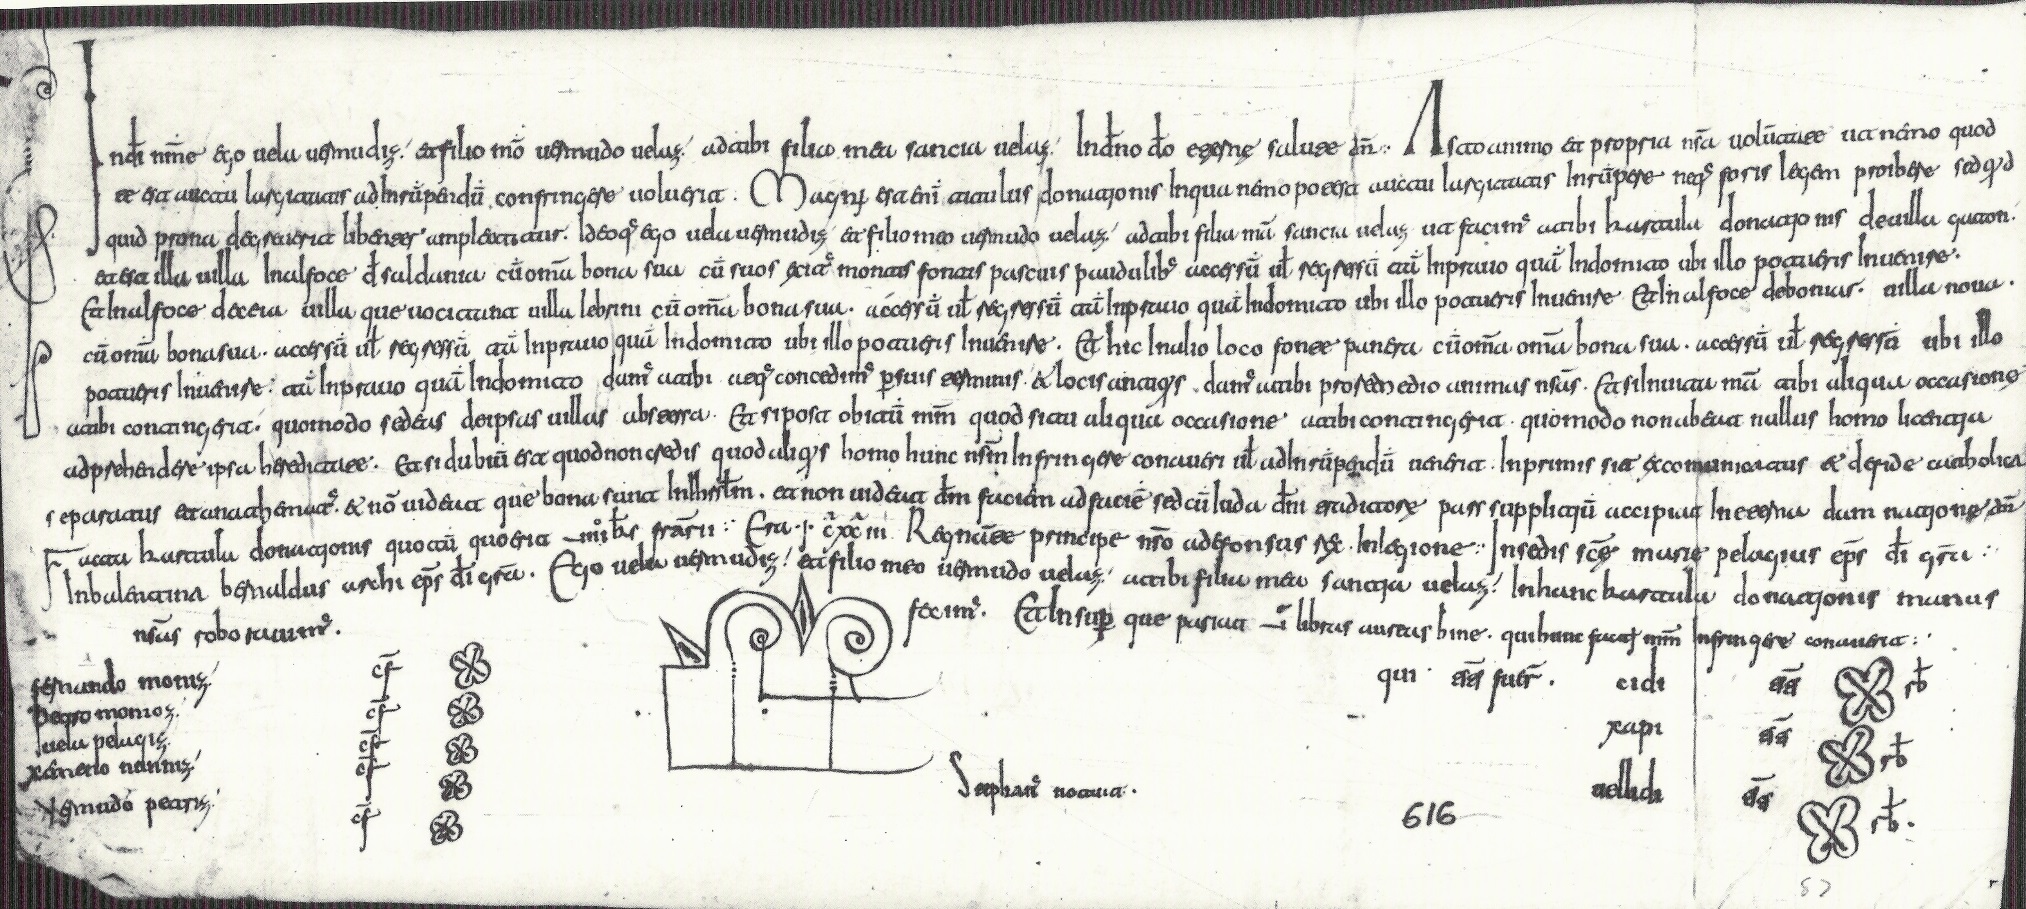 In dī nm̄e ego uela uermudiz. et filio mō uermudo uelaz. ad tibi filia mea sancia uelaz. In dn̄o dō eterne salute am̄. Ato animo et propria nr̄a uolūtate ut nemo quod
te est auctu largitatis ad Inrūpendū confringere uoluerit. Magnus est enī titulus donationis In qua nemo potest auctu largitatis Inrūpere neq; foris legem proibere sed quid
quid prona decreuerit libenter amplectatur. Ideoq; ego uela uermudiz et filio meo uermudo uelaz. ad tibi filia mā sancia uelaz ut facim; a tibi kartula donationis de uilla
et est illa uilla In alfoce d̄ saldania cū om̄a bona sua cū suos montis fontis pascuis paudulib; accessū ul̄ regressū tā In prauo quā Indomito ubi illo potueris Inuenire.
Et In alfoce de ceia uilla que uocitant uilla lebrini cū om̄a bona sua. accessū ul̄ regressū tā In prauo quā Indomito ubi illo potueris Inuenire Et In alfoce de uilla noua.
cū om̄a bona sua. accessū ul̄ regressū tā In prauo quā Indomito ubi illo potueris Inuenire. Et hic In alio loco fonte cū om̄a om̄a bona sua. accessū ul̄ regressū ubi illo
potueris Inuenire: tā In prauo quā Indomito dam; a tibi atq; concedim; p suis terminis & locis antiquis. dam; a tibi pro remedio animas nr̄as. Et si In uita mā tibi aliqua occasione
a tibi contingerit. quomodo sedeas de ipsas uillas Et si post obitū mm̄ quod si tu aliqua occasione a tibi contingerit. quomodo non abeat nullus homo licentia
ad prehendere ipsa hereditate. Et si dubiū est quod non credis quod aliquis homo hunc nr̄m Infringere conaueri ul̄ ad Inrūpendū uenerit. In primis sit excomunicatus & de fide catholica
separatus et anathemat; & nō uideat que bona sunt In ihrl̄m. et non uideat dm̄ faciem ad faciē sed cū Iuda dm̄ traditore pass suppliciū accipiat In eterna damnatione am̄
Facta kartula donationis quotū quod erit Era I C XX III Regnāte principe nr̄o adefonsus rex In legione. In sedis sc̄e marie pelagius ep̄s dī gr̄a:
In balentina bernaldus archi ep̄s dī gr̄a. Ego uela uermudiz. et filio meo uermudo uelaz a tibi filia mea sanctia uelaz. In hanc kartula donationis manus
nr̄as roborauim;.
fecim;. Et In sup que pariat libras aureas bine. qui hunc mm̄ Infringere conauerit:
fernando moniz. cf
petro monioz. cf
uela pelagiz. cf
xemeno nunniz. cf
uermudo petriz. cf
Stephan; notuit.
qui tt̄ fuer̄.
cidi tt̄ rb̄
xapi tt̄ rb̄
uellidi tt̄ rb̄.
616